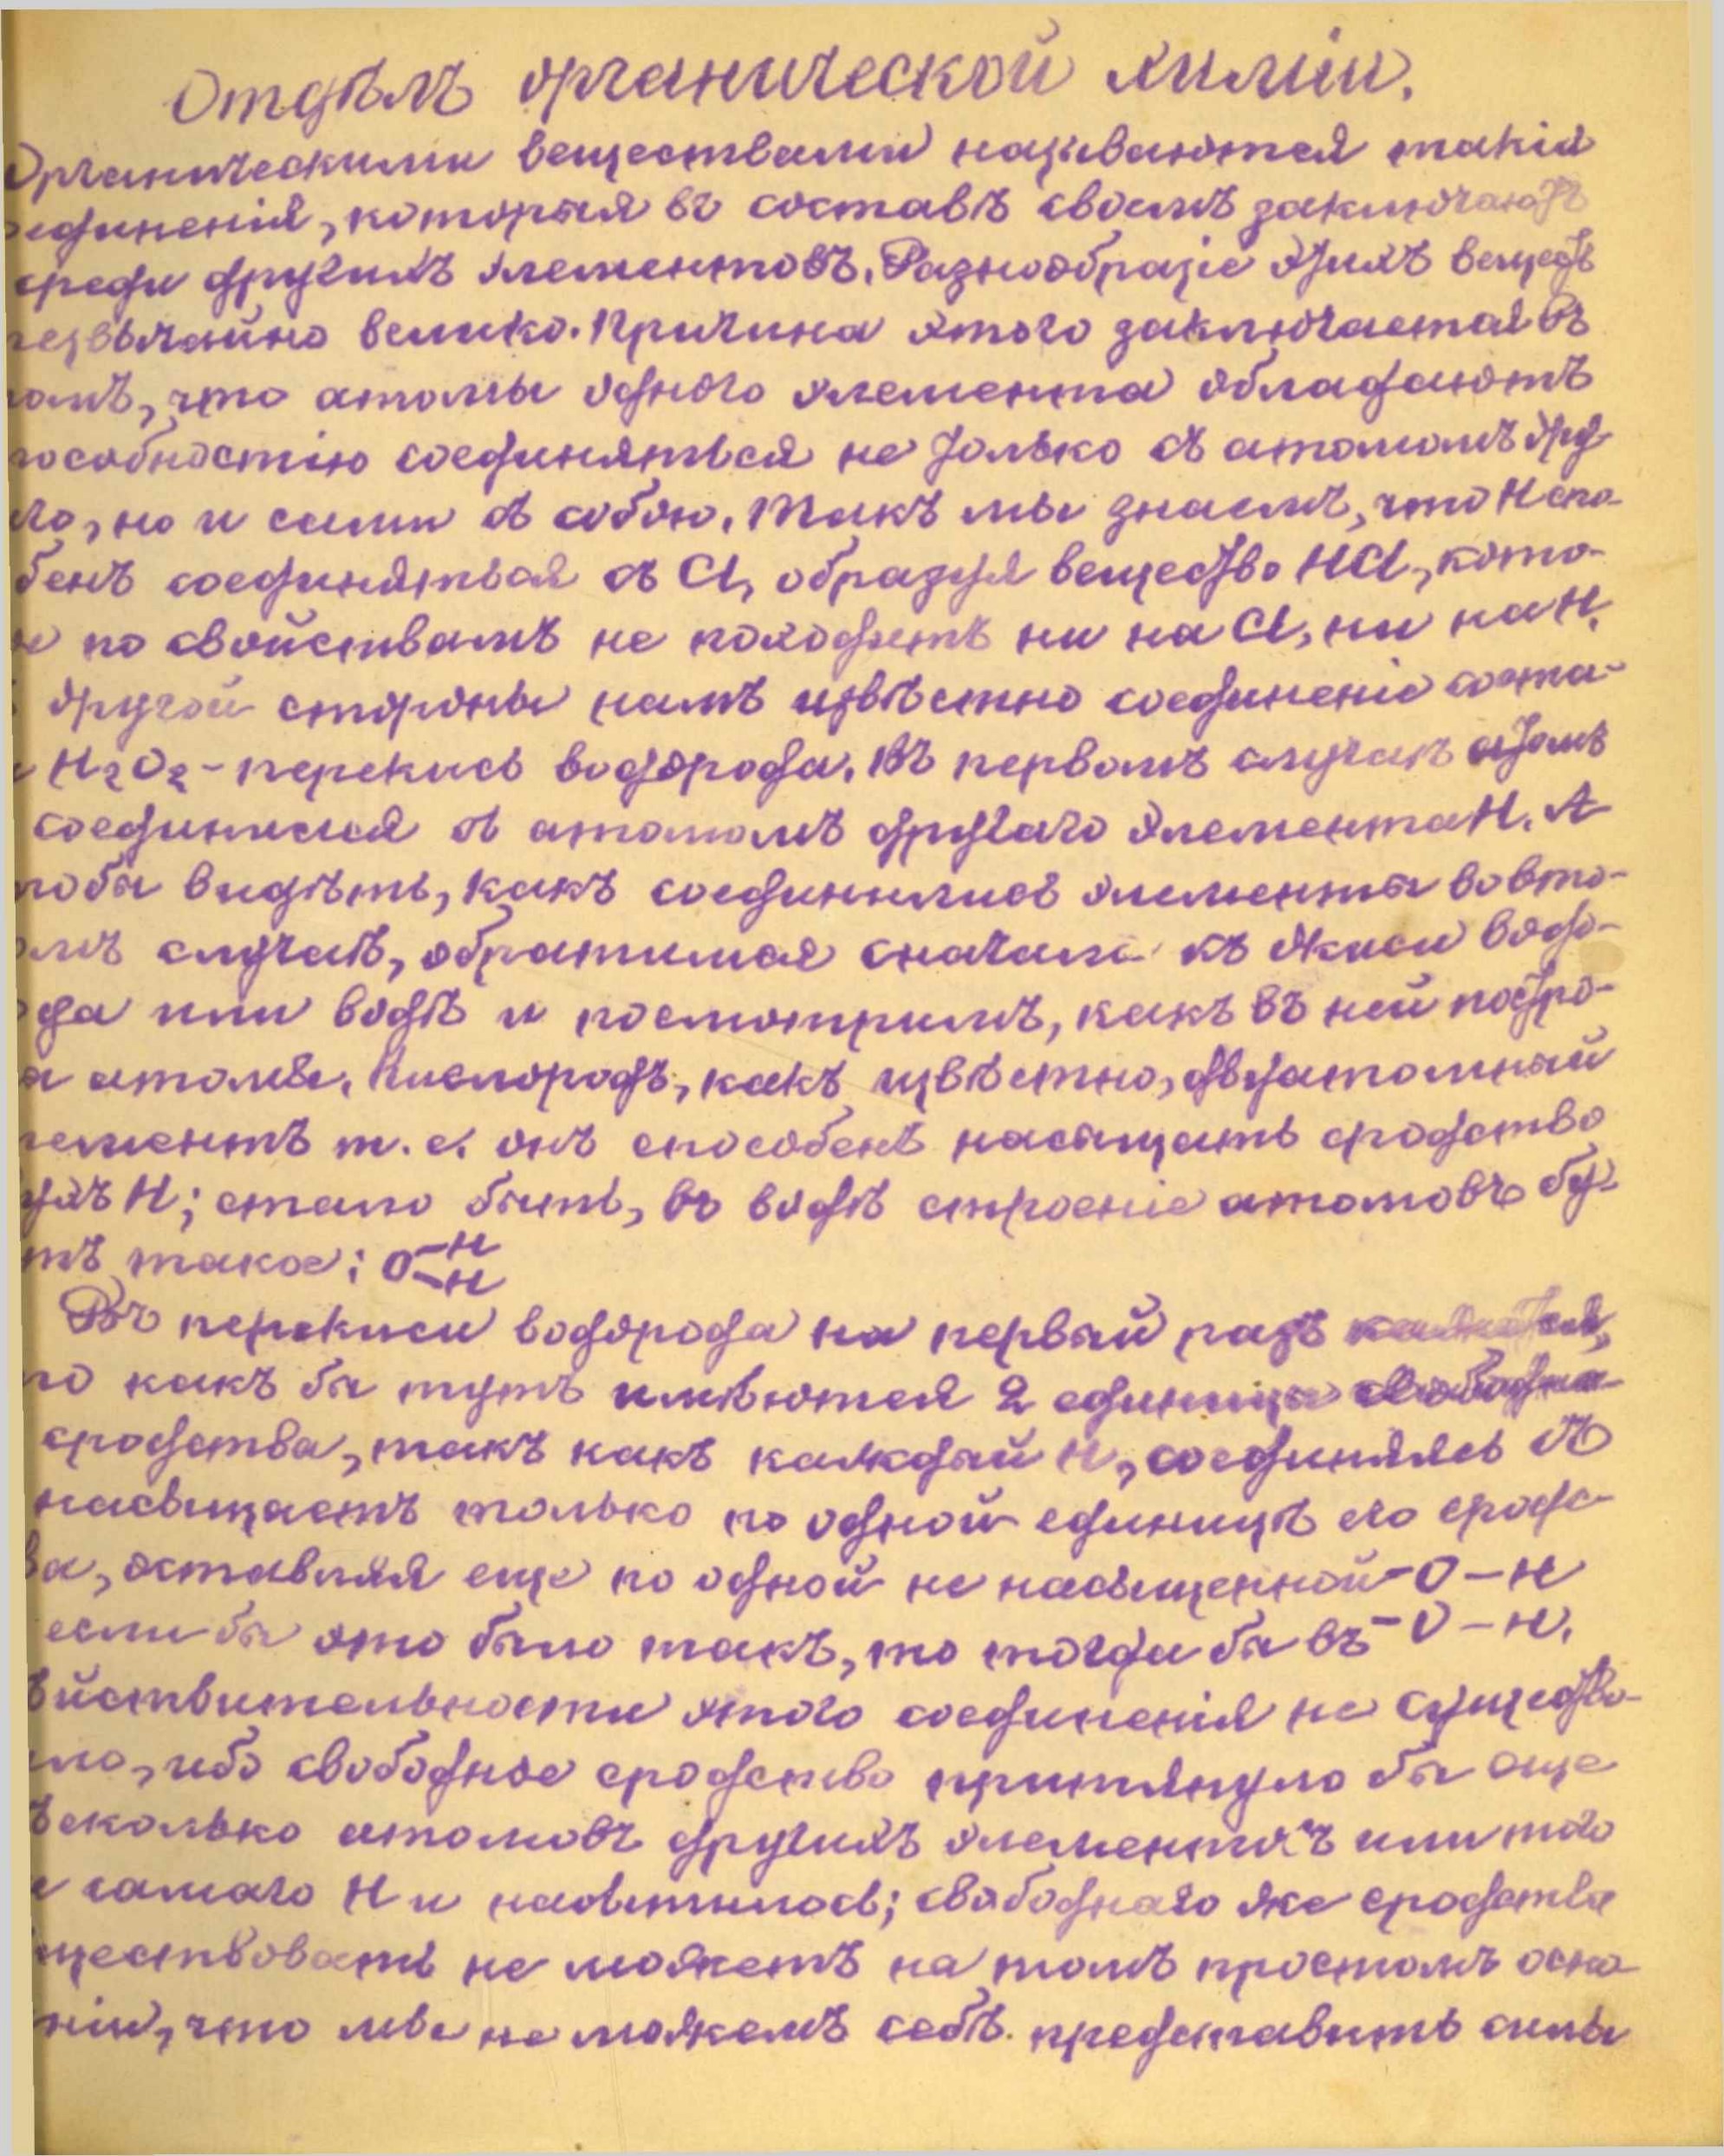 Отдѣлъ органической химіи.
Органическими веществами называются такія
единенія, которыя въ составѣ своемъ заключаютъ
среди другихъ элементовъ. Разнообразіе этихъ веществ
резвычайно велико. Причина этого заключается въ
омъ, что атомы одного элемента обладаютъ
пособностію соединяться не только съ атомомъ дру
го, но и сами съ собою. Такъ мы знаемъ, что H спо-
бенъ соединяться съ Cl, образуя вещество HCl, кото-
е по свойствамъ не походитъ ни на Cl, ни на H.
другой стороны намъ извѣстно соединеніе соста-
H₂O₂ - перекись водорода. Въ первомъ случаѣ атомъ
соединился съ атомомъ другаго элемента H. А
тобы видѣть, какъ соединились элементы во вто-
омъ случаѣ, обратимся сначала къ окиси водо-
да или водѣ и посмотримъ, какъ въ ней постро-
ы атомы. Кислородъ, какъ извѣстно, двуатомный
лементъ т. е. онъ способенъ насыщать сродство
ухъ H; стало быть, въ водѣ строеніе атомовъ бу-
тъ такое: O-H
-H
Въ перекиси водорода на первый разъ кажется,
то какъ бы тутъ имѣются 2 единицы свободна-
сродства, такъ какъ каждый H, соединяясь съ O
насыщаетъ только по одной единицѣ его сродс-
ва, оставляя еще по одной не насыщенной -O-H
если бы это было такъ, то тогда бы въ -O-H.
ѣйствительности этого соединенія не существо-
ло, ибо свободное сродство притянуло бы еще
ѣсколько атомовъ другихъ элементовъ или того
е самаго H и насытилось; свободнаго же сродства
ществовать не можетъ на томъ простомъ осно-
ніи, что мы не можемъ себѣ представить силы